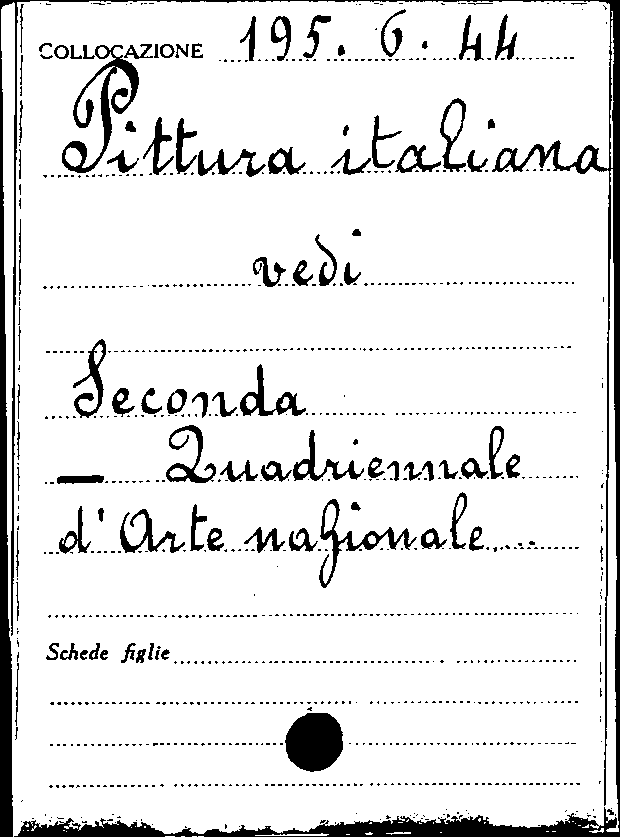 COLLOCAZIONE 195. 6. 44
Pittura italiana
vedi
Seconda
— Quadriennale
d'Arte nazionale...
Schede figlie